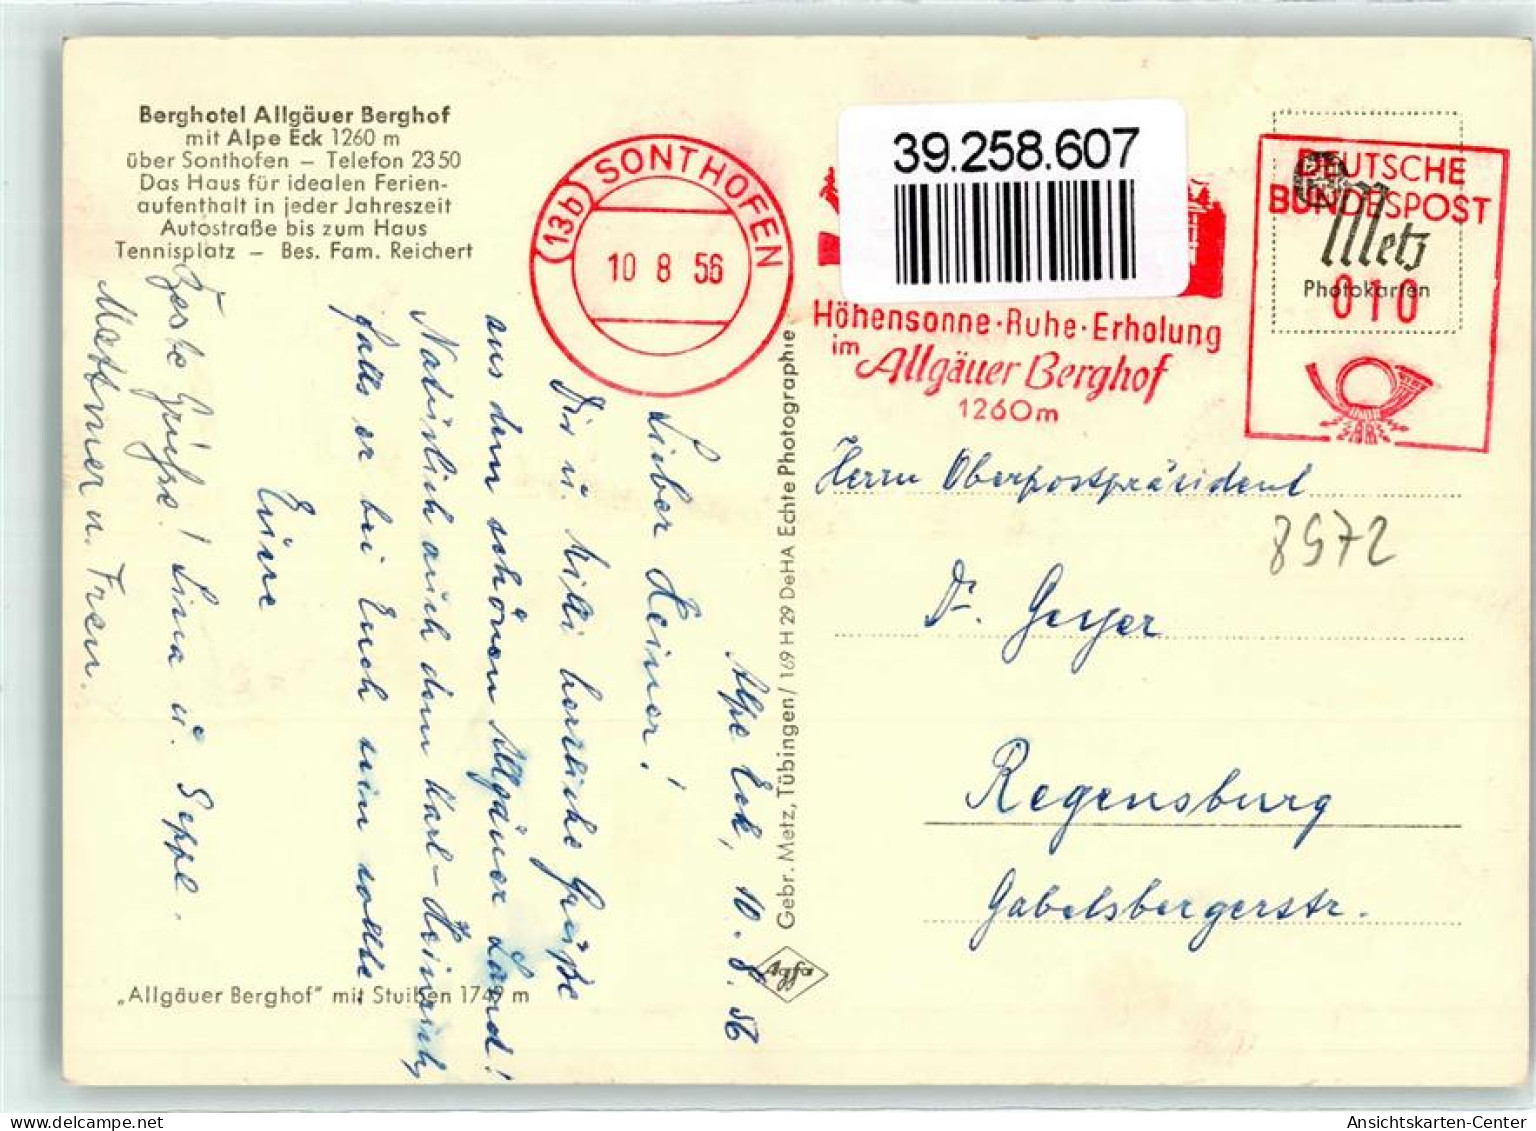 Berghotel Allgäuer Berghof
mit Alpe Eck 1260 m
über Sonthofen — Telefon 2350
Das Haus für idealen Ferien-
aufenthalt in jeder Jahreszeit
Autostraße bis zum Haus
Tennisplatz — Bes. Fam. Reichert
(13b) SONTHOFEN
10 8 56
39.258.607
Höhensonne·Ruhe·Erholung
im Allgäuer Berghof
1260m
DEUTSCHE
BUNDESPOST
010
Metz
Photokarten
Alpe Eck, 10.8.56
Lieber Heiner!
Dir u. Milli herzliche Grüße
aus dem schönen Allgäuer Land!
Natürlich auch dem Karl-Heinrich,
falls er bei Euch sein sollte.
Eure
Lina u. Seppl.
Feste Grüße!
Mettmer u. Frau.
Herrn Oberpostpräsident
8972
Dr. Geyer
Regensburg
Gabelsbergerstr.
Gebr. Metz, Tübingen/ 169 H 29 DeHA Echte Photographie
Agfa
„Allgäuer Berghof" mit Stuiben 1749 m
Ansichtskarten-Center